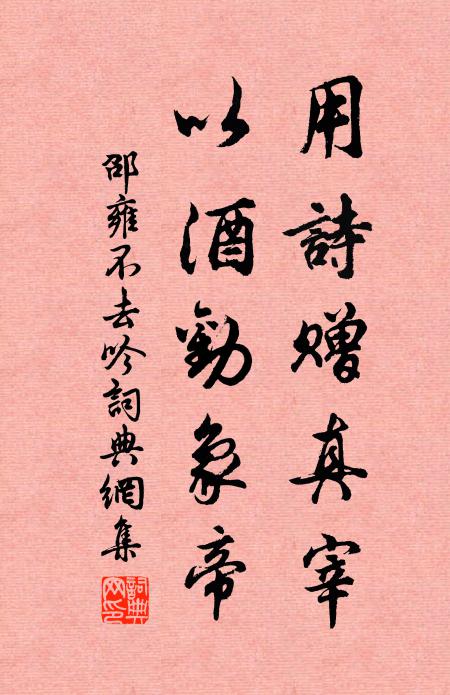 用詩贈真宰
以酒勸象帝
邵雍不去吟詞典網集
詞典網印